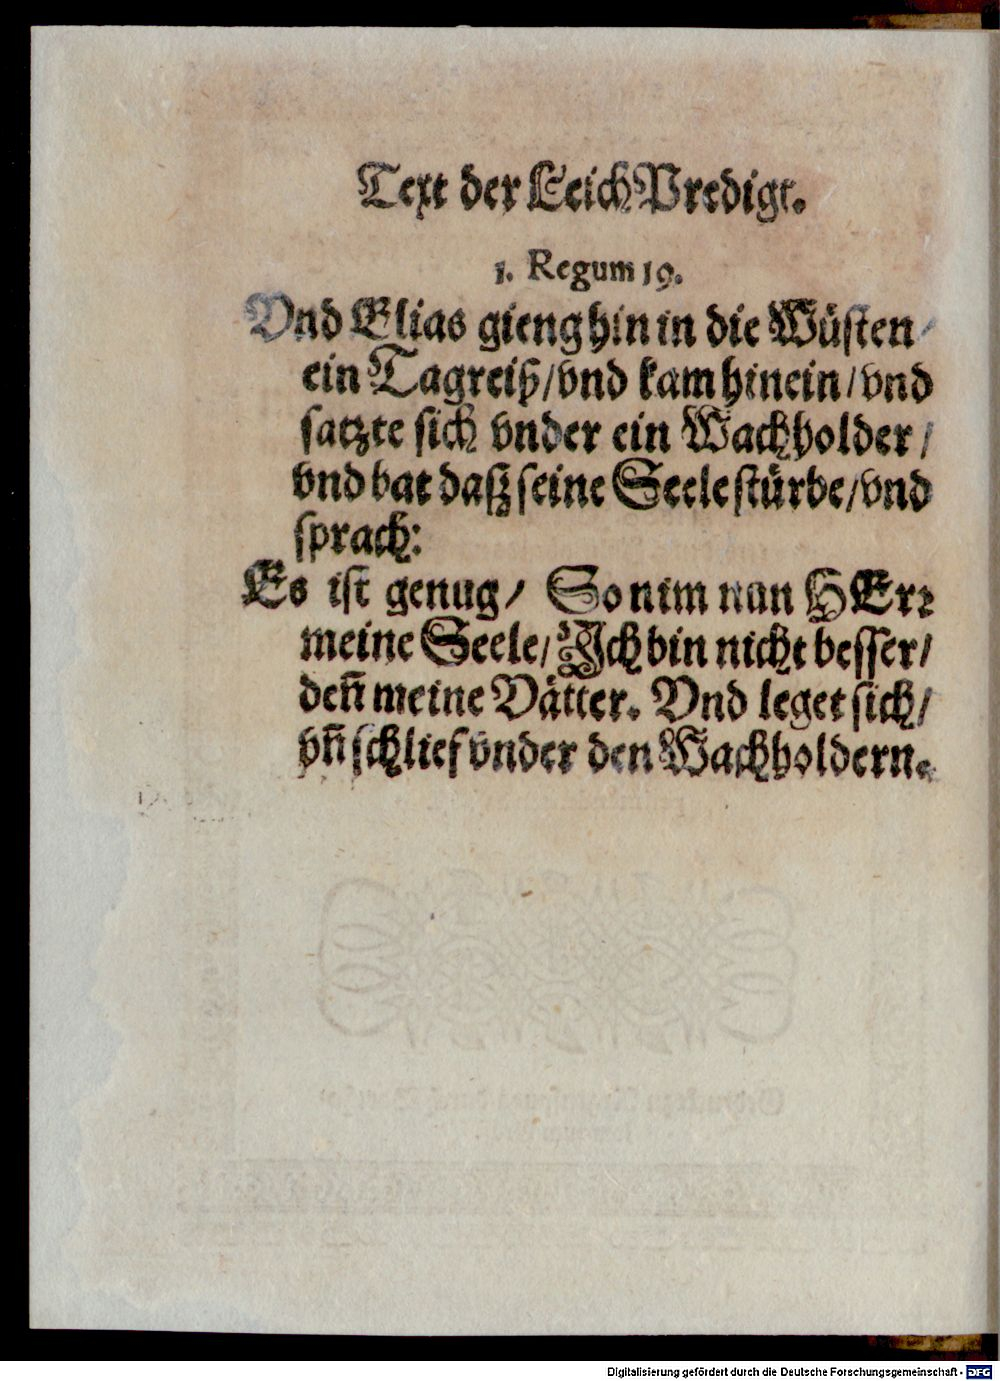 Text der LeichPredigt.
1. Regum 19.
Vnd Elias gieng hin in die Wüsten/
ein Tagreiß/vnd kam hinein/vnd
satzte sich vnder ein Wachholder/
vnd bat daß seine Seele stürbe/vnd
sprach:
Es ist genug/ So nim nun HErꝛ
meine Seele/Ich bin nicht besser/
deñ meine Vätter. Vnd leget sich/
vñ schlief vnder den Wachholdern.
Digitalisierung gefördert durch die Deutsche Forschungsgemeinschaft - DFG